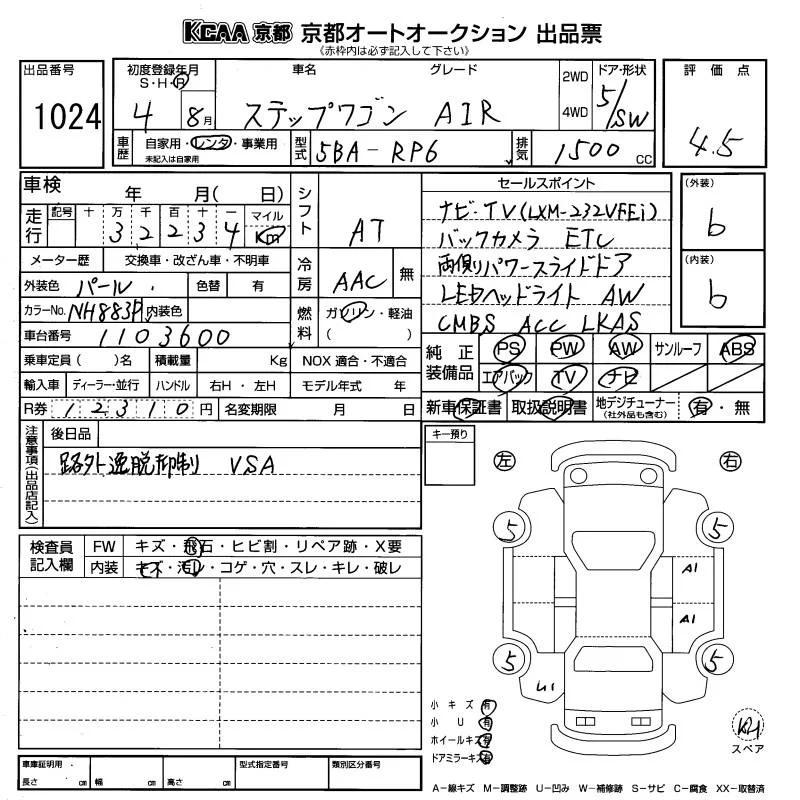 KCAA 京都 京都オートオークション 出品票
《赤枠内は必ず記入して下さい》
出品番号
1024
初度登録年月
S・H・R
4 8月
車名 グレード
ステップワゴン AIR
2WD
4WD
ドア・形状
5/SW
評価点
4.5
車歴
自家用・レンタ・事業用
未記入は自家用
型式
5BA-RP6
排気
1500 CC
車検 年 月( 日)
走行
記号 十 万 千 百 十 一 マイル
3 2 2 3 4 Km
メーター歴 交換車・改ざん車・不明車
外装色 パール 色替 有
カラーNo. NH883P 内装色
車台番号 1103600
乗車定員( )名 積載量 Kg
輸入車 ディーラー・並行 ハンドル 右H・左H
R券 12310円 名変期限 月 日
シフト AT
冷房 AAC 無
燃料 ガソリン・軽油
( )
NOX 適合・不適合
モデル年式 年
セールスポイント
ナビ・TV(LXM-232VFEi)
バックカメラ ETC
両側パワースライドドア
LEDヘッドライト AW
CMBS ACC LKAS
(外装)
b
(内装)
b
純正装備品
PS PW AW サンルーフ ABS
エアバック TV ナビ
新車保証書 取扱説明書 地デジチューナー (社外品も含む) 有・無
注意事項(出品店記入)
後日品
路外逸脱抑制 VSA
キー預り
検査員記入欄
FW キズ・飛石・ヒビ割・リペア跡・X要
内装 キズ・汚レ・コゲ・穴・スレ・キレ・破レ
左 右
5 5
A1
A1
5 5
U1
小キズ 有
小U 有
ホイールキズ 有
ドアミラーキズ 有
スペア
車庫証明用
長さ cm 幅 cm 高さ cm
型式指定番号 類別区分番号
A-線キズ M-調整跡 U-凹み W-補修跡 S-サビ C-腐食 XX-取替済